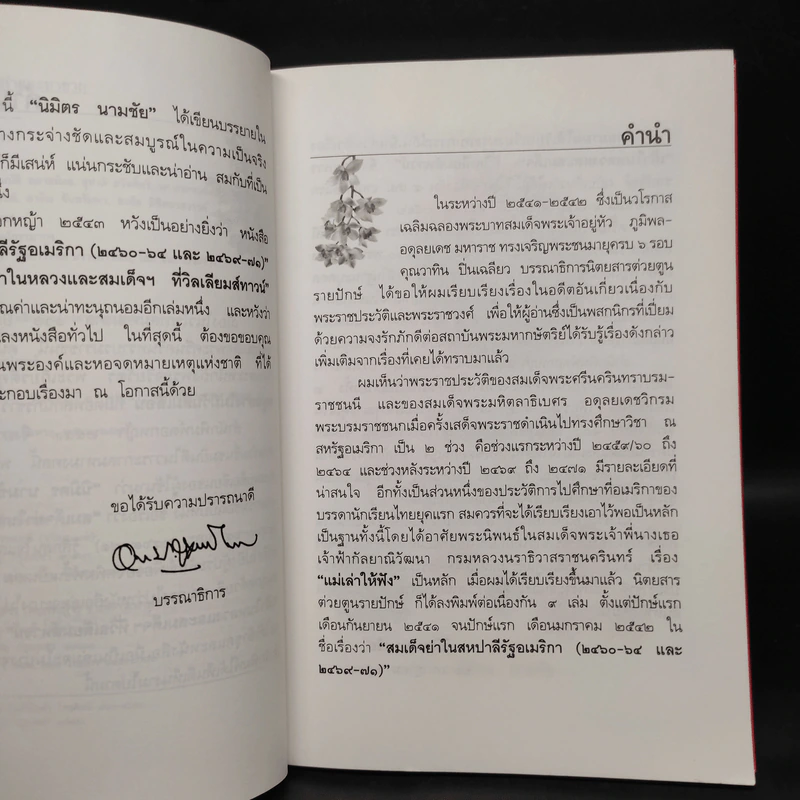 นี้ “นิมิตร นามชัย” ได้เขียนบรรยายใน
างกระจ่างชัดและสมบูรณ์ในความเป็นจริง
ก็มีเสน่ห์ แน่นกระชับและน่าอ่าน สมกับที่เป็น
นึ่ง
อกหญ้า ๒๕๔๓ หวังเป็นอย่างยิ่งว่า หนังสือ
ลีรัฐอเมริกา (๒๔๖๐-๖๔ และ ๒๔๖๙-๗๑)”
่าในหลวงและสมเด็จฯ ที่วิลเลียมส์ทาวน์”
ุณค่าและน่าทะนุถนอมอีกเล่มหนึ่ง และหวังว่า
ลงหนังสือทั่วไป ในที่สุดนี้ ต้องขอขอบคุณ
นพระองค์และหอจดหมายเหตุแห่งชาติ ที่ได้
ะกอบเรื่องมา ณ โอกาสนี้ด้วย
ขอได้รับความปรารถนาดี
บรรณาธิการ
คำนำ
ในระหว่างปี ๒๕๔๑-๒๕๔๒ ซึ่งเป็นวโรกาส
เฉลิมฉลองพระบาทสมเด็จพระเจ้าอยู่หัว ภูมิพล-
อดุลยเดช มหาราช ทรงเจริญพระชนมายุครบ ๖ รอบ
คุณวาทิน ปิ่นเฉลียว บรรณาธิการนิตยสารต่วยตูน
รายปักษ์ ได้ขอให้ผมเรียบเรียงเรื่องในอดีตอันเกี่ยวเนื่องกับ
พระราชประวัติและพระราชวงศ์ เพื่อให้ผู้อ่านซึ่งเป็นพสกนิกรที่เปี่ยม
ด้วยความจงรักภักดีต่อสถาบันพระมหากษัตริย์ได้รับรู้เรื่องดังกล่าว
เพิ่มเติมจากเรื่องที่เคยได้ทราบมาแล้ว
ผมเห็นว่าพระราชประวัติของสมเด็จพระศรีนครินทราบรม-
ราชชนนี และของสมเด็จพระมหิตลาธิเบศร อดุลยเดชวิกรม
พระบรมราชชนกเมื่อครั้งเสด็จพระราชดำเนินไปทรงศึกษาวิชา ณ
สหรัฐอเมริกา เป็น ๒ ช่วง คือช่วงแรกระหว่างปี ๒๔๕๙/๖๐ ถึง
๒๔๖๔ และช่วงหลังระหว่างปี ๒๔๖๙ ถึง ๒๔๗๑ มีรายละเอียดที่
น่าสนใจ อีกทั้งเป็นส่วนหนึ่งของประวัติการไปศึกษาที่อเมริกาของ
บรรดานักเรียนไทยยุคแรก สมควรที่จะได้เรียบเรียงเอาไว้พอเป็นหลัก
เป็นฐานทั้งนี้โดยได้อาศัยพระนิพนธ์ในสมเด็จพระเจ้าพี่นางเธอ
เจ้าฟ้ากัลยาณิวัฒนา กรมหลวงนราธิวาสราชนครินทร์ เรื่อง
“แม่เล่าให้ฟัง” เป็นหลัก เมื่อผมได้เรียบเรียงขึ้นมาแล้ว นิตยสาร
ต่วยตูนรายปักษ์ ก็ได้ลงพิมพ์ต่อเนื่องกัน ๙ เล่ม ตั้งแต่ปักษ์แรก
เดือนกันยายน ๒๕๔๑ จนปักษ์แรก เดือนมกราคม ๒๕๔๒ ใน
ชื่อเรื่องว่า “สมเด็จย่าในสหปาลีรัฐอเมริกา (๒๔๖๐-๖๔ และ
๒๔๖๙-๗๑)”